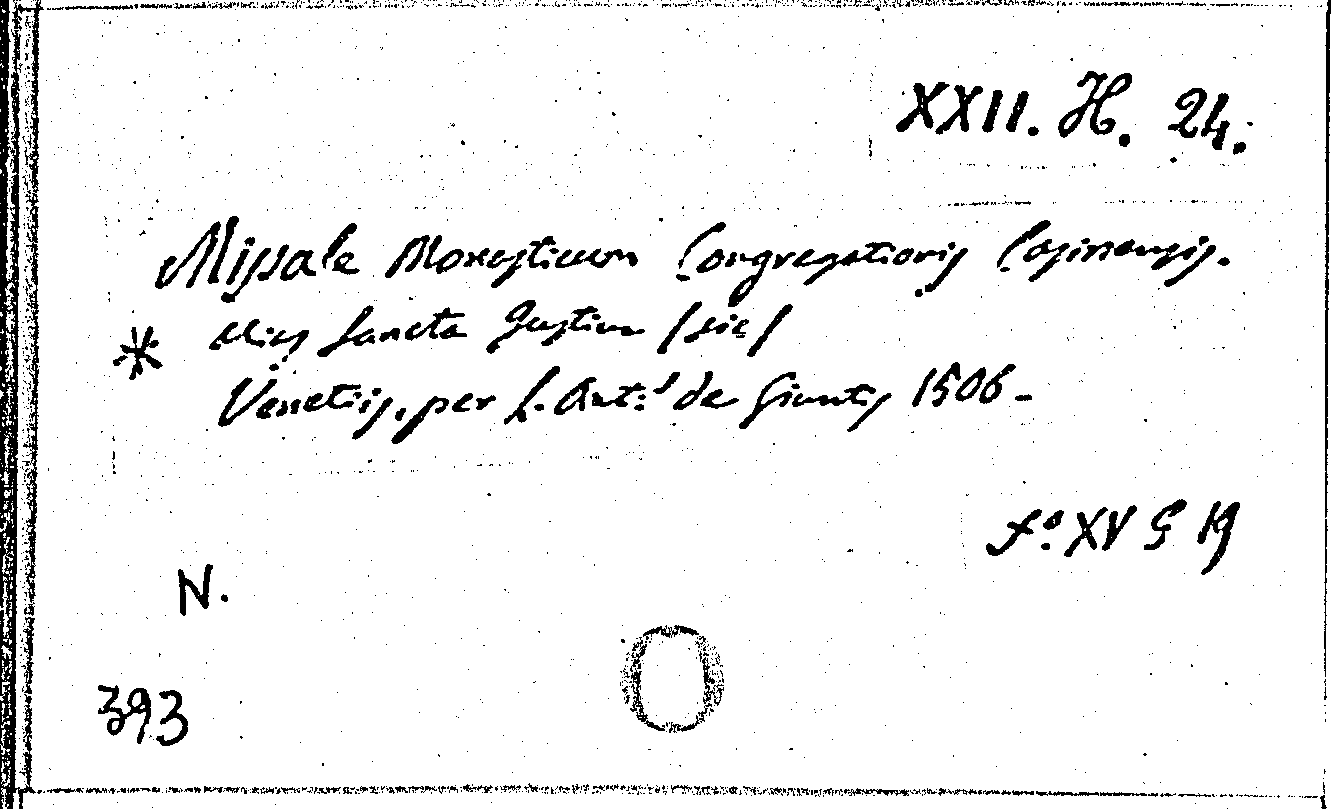 XXII. H. 24.
Missale Monasticum Congregationis Casinensis.
* alias Sancta Justina (sic)
Venetiis, per L. Ant.' de Giuntis 1506-
f.o XV G 19
N.
393